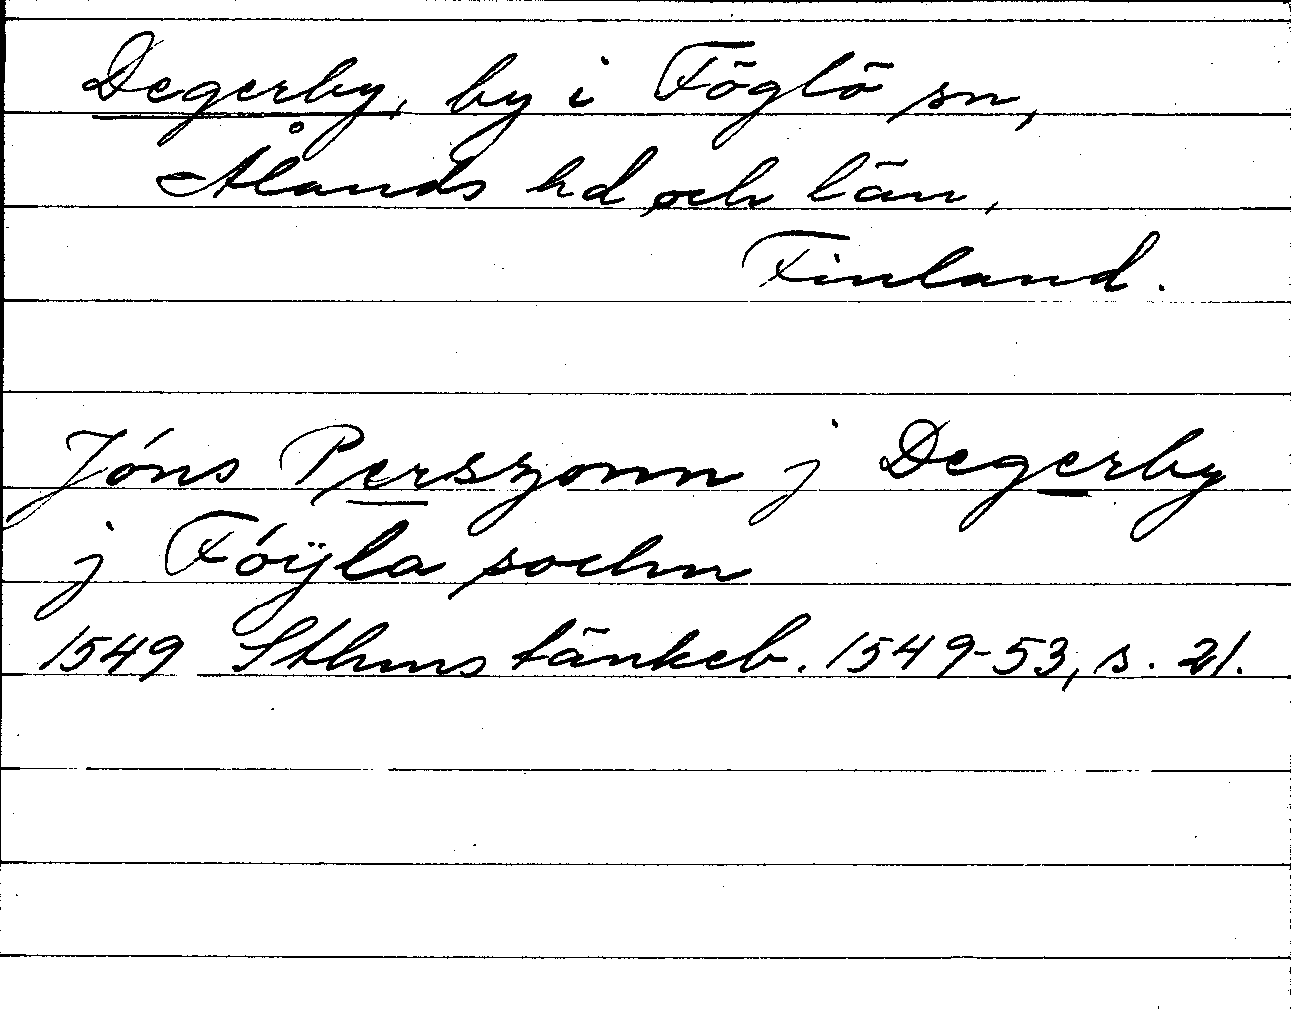 Degerby, by i Föglö sn,
Ålands hd och län,
Finland.
Jóns Perszonn j Degerby
j Fóÿla sochn
1549 Sthms tänkeb. 1549-53, s. 21.